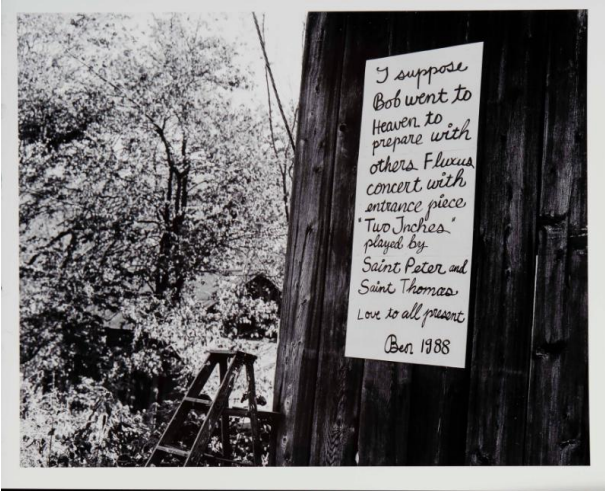 I suppose
Bob went to
Heaven to
prepare with
others Fluxus
concert with
entrance piece
"Two Inches"
played by
Saint Peter and
Saint Thomas
Love to all present
Ben 1988